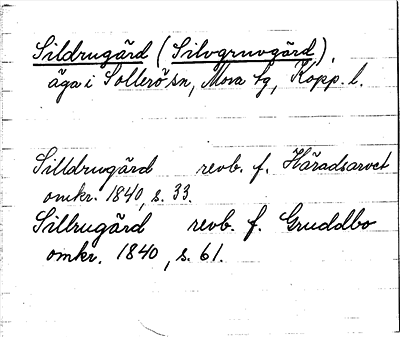 Sildrugård (Silvgruvgård),
äga i Sollerö sn, Mora tg, Kopp. l.
Silldrugård revb. f. Häradsarvet
omkr. 1840, s. 33.
Sillrugård revb. f. Gruddbo
omkr. 1840, s. 61.